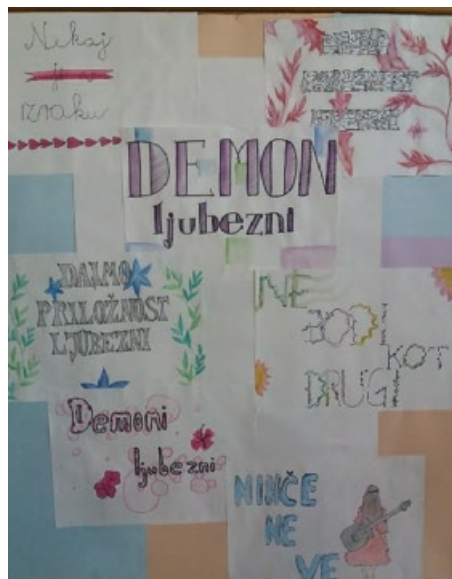 Nekaj
je v
zraku
DAJMO
PRILOŽNOST
LJUBEZNI
DEMON
ljubezni
DAJMO
PRILOŽNOST
LJUBEZNI
NE
BOD
KOT
DRUGI
Demoni
ljubezni
NIHČE
NE
VE